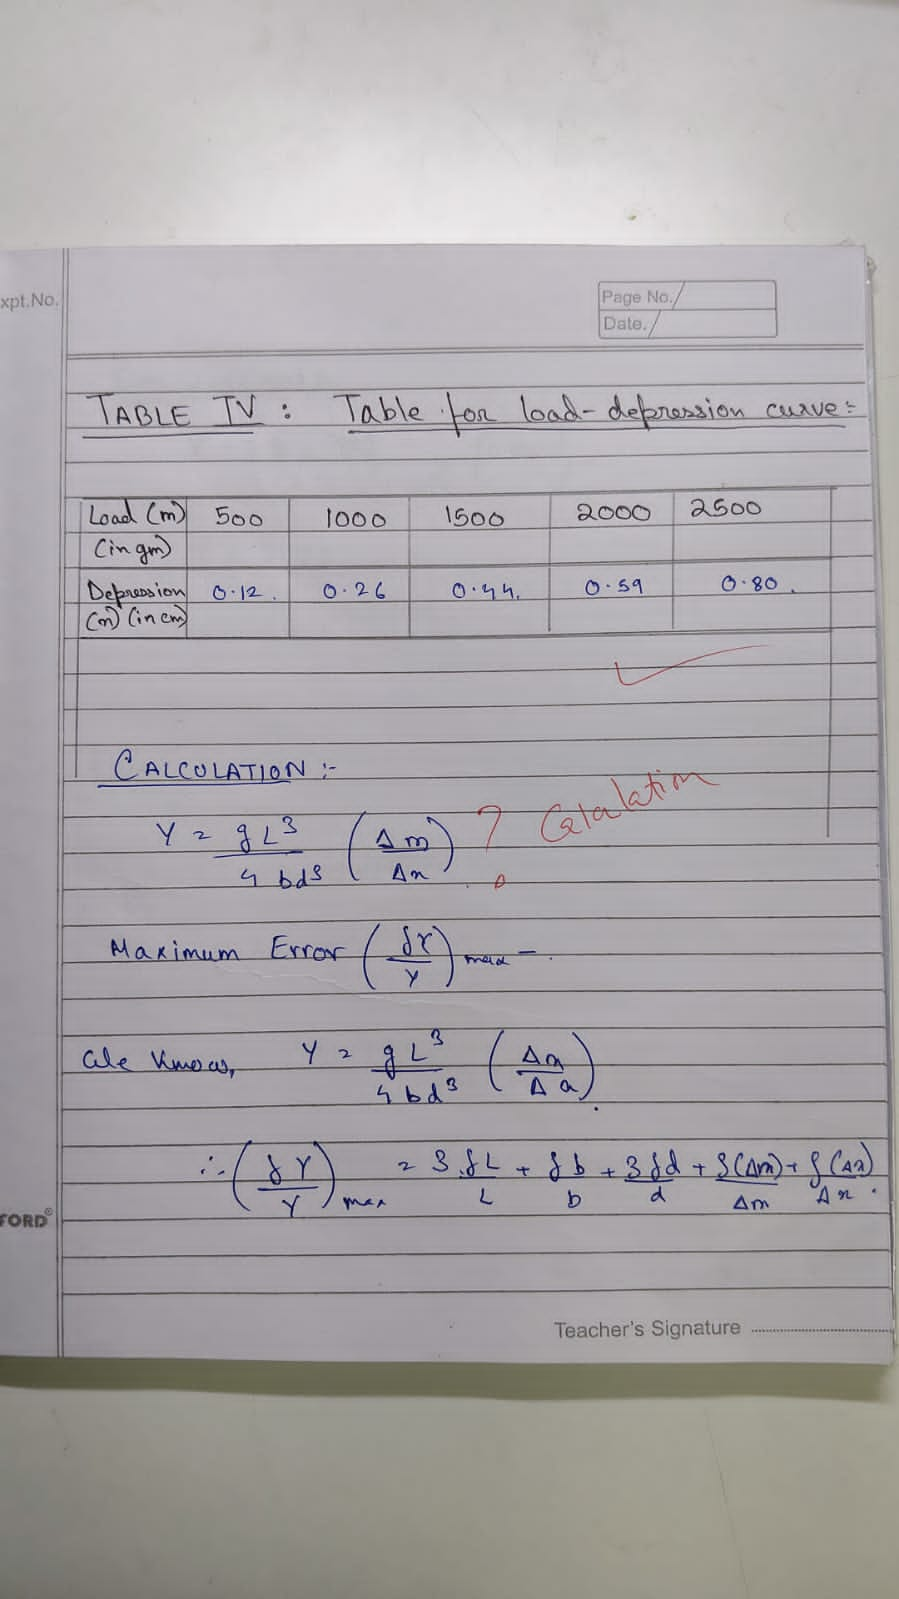 xpt.No.
Page No.
Date.
TABLE IV : Table for load-depression curve :
Load (m) (in gm) 500 1000 1500 2000 2500
Depression (n) (in cm) 0.12 . 0.26 0.44. 0.59 0.80 .
CALCULATION :-
Y = gL³ / 4 bd³ (Δm / Δn) ?
Maximum Error (δY / Y) max - .
We Know, Y = gL³ / 4 bd³ (Δm / Δn) .
∴ (δY / Y) max = 3 δL / L + δb / b + 3 δd / d + δ(Δm) / Δm + δ(Δn) / Δn .
FORD®
Teacher's Signature